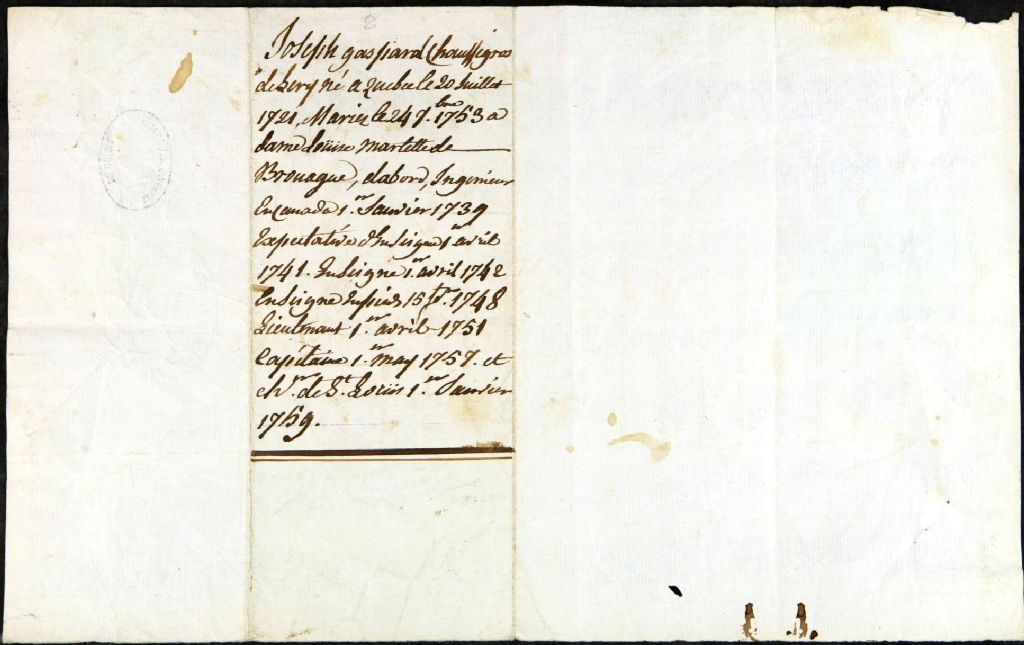 2
Joseph gaspard Chaussegros
de Lery né a Quebec le 20 Juillet
1721, Marié le 24 7.bre 1753 a
dame Loüise martelle de
Brouague, dabord, Ingenieur
En Canada 1.er Janvier 1739
Expectative d'Enseigne 1er avril
1741. Enseigne 1.er avril 1742
Enseigne En pied 15 f.er 1748
Lieutenant 1.er avril 1751
Capitaine 1.er may 1757. et
ch.er de St. Loüis 1.er Janvier
1759.